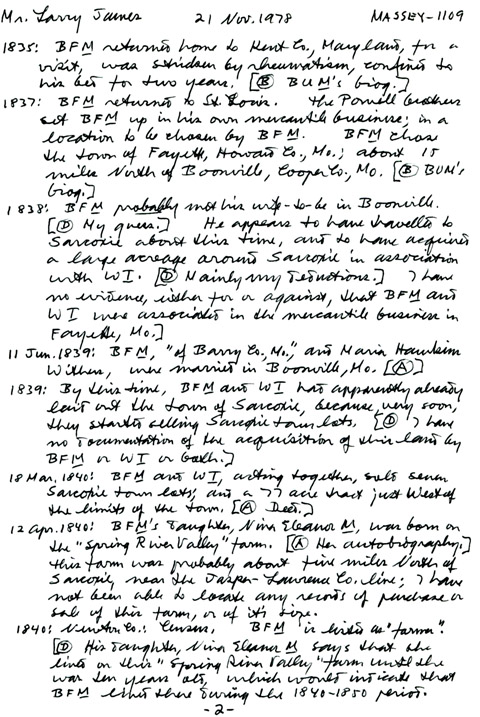 Mr. Larry James 21 Nov. 1978 MASSEY-1109
1835: BFM returned home to Kent Co., Maryland, for a
visit, was stricken by rheumatism, confined to
his bed for two years. [Ⓑ BUM's biog.]
1837: BFM returned to St. Louis. The Powell brothers
set BFM up in his own mercantile business; in a
location to be chosen by BFM. BFM chose
the town of Fayette, Howard Co., Mo.; about 15
miles North of Boonville, Cooper Co., Mo. [Ⓑ BUM's
biog.]
1838: BFM probably met his wife-to-be in Boonville.
[Ⓓ My guess.] He appears to have travelled to
Sarcoxie about this time, and to have acquired
a large acreage around Sarcoxie in association
with WI. [Ⓓ Mainly my deductions.] I have
no evidence, either for or against, that BFM and
WI were associated in the mercantile business in
Fayette, Mo.]
11 Jun. 1839: BFM, "of Barry Co., Mo." and Maria Hawkins
Withers, were married in Boonville, Mo. [Ⓐ]
1839: By this time, BFM and WI had apparently already
laid out the town of Sarcoxie, because, very soon,
they started selling Sarcoxie town lots. [Ⓓ I have
no documentation of the acquisition of this land by
BFM or WI or both.]
18 Mar. 1840: BFM and WI, acting together, sold seven
Sarcoxie town lots; and a 77 acre tract just West of
the limits of the town. [Ⓐ Deed.]
12 Apr. 1840: BFM's daughter, Nina Eleanor M, was born on
the "Spring River Valley" farm. [Ⓐ Her autobiography.]
This farm was probably about five miles North of
Sarcoxie, near the Jasper-Lawrence Co. line; I have
not been able to locate any records of purchase or
sale of this farm, or of its size.
1840: Newton Co.: Census. BFM is listed as "farmer".
[Ⓓ His daughter, Nina Eleanor M says that she
lived on this "Spring River Valley" farm until she
was ten years old, which would indicate that
BFM lived there during the 1840-1850 period.
-2-